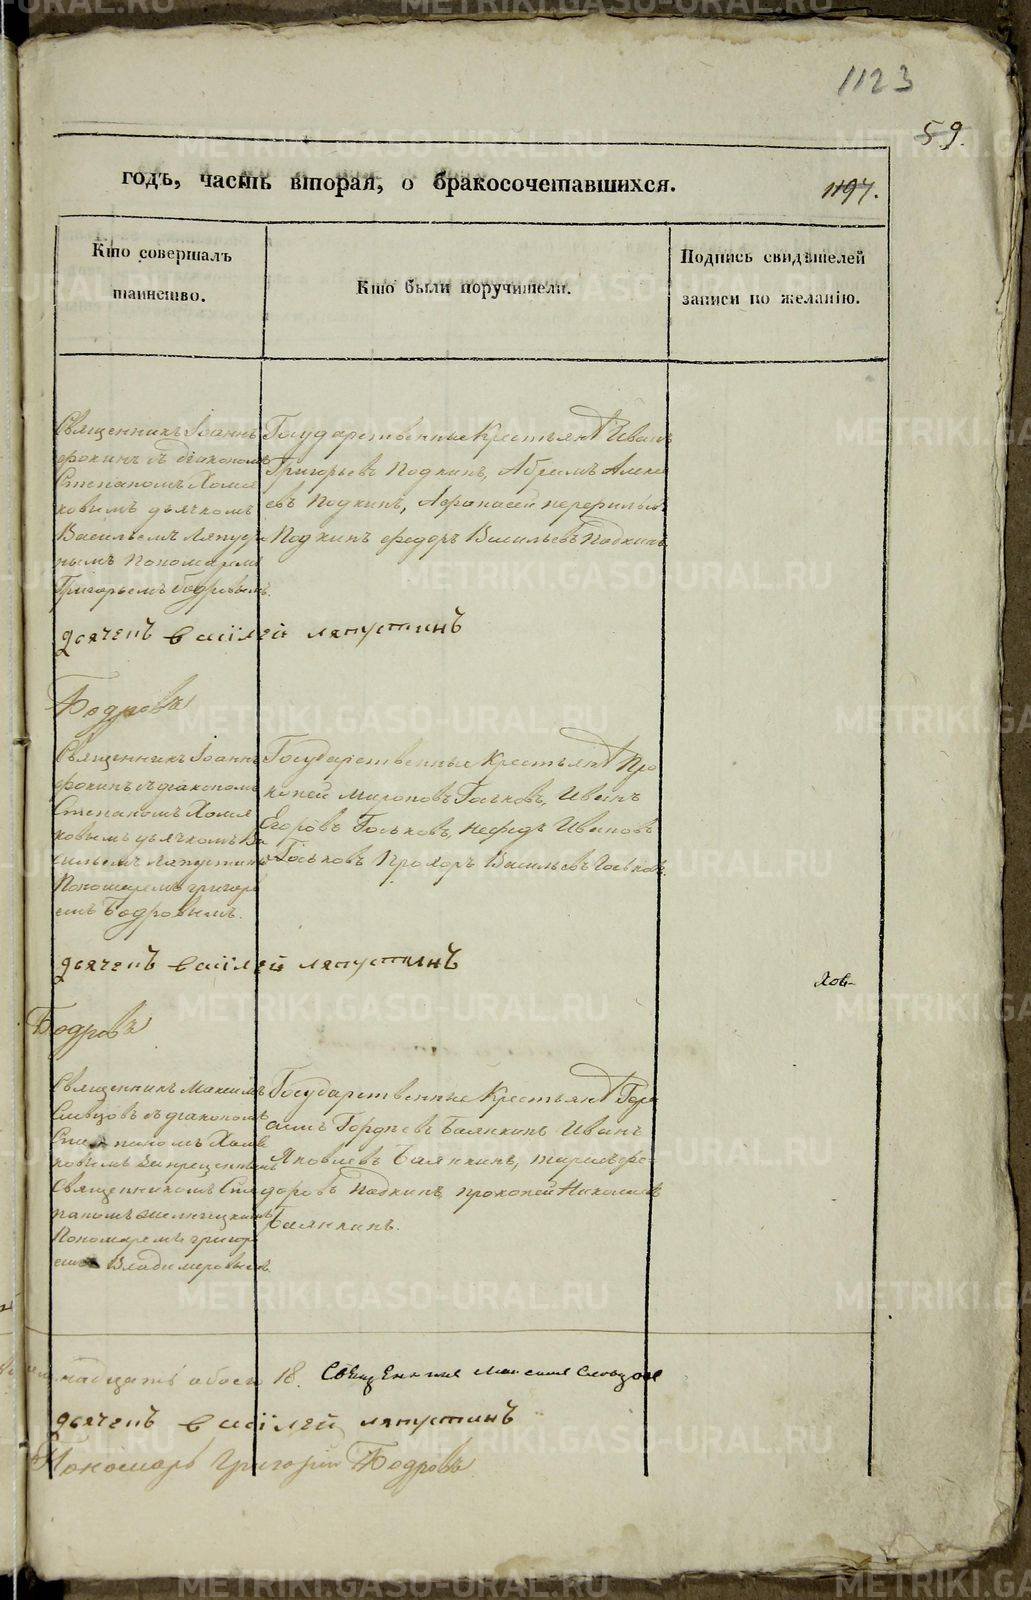 1123
59.
годъ, часть вторая, о бракосочетавшихся.
1197.
Кто совершалъ таинство.
Кто были поручители.
Подпись свидѣтелей записи по желанію.
Священникъ Іоаннъ
Фокинъ съ діакономъ
Степаномъ Хомя
ковымъ дьячкомъ
Васильемъ Ляпусти
нымъ Пономаремъ
Григорьемъ Бодровымъ.
Государственные Крестьяне Иванъ
Григорьевъ Подкинъ, Абрамъ Алексе
евъ Подкинъ, Афанасей Перфильевъ
Подкинъ Федоръ Васильевъ Подкинъ
дьячекъ василей ляпустинъ
Бодровъ
Священникъ Іоаннъ
Фокинъ съ діакономъ
Степаномъ Хомя
ковымъ дьячкомъ Ва
сильемъ Ляпустинымъ
Пономаремъ Григорь
емъ Бодровымъ.
Государственные Крестьяне Про
копей Мироновъ Гоьковъ, Иванъ
Егоровъ Гоьковъ, Нефедъ Ивановъ
Гоьковъ Прохоръ Васильевъ Гоьковъ
дьячекъ василей ляпустинъ
Хов-
Бодровъ
Священникъ Максимъ
Словцовъ съ діакономъ
Степаномъ Хомя
ковымъ Запрещеннымъ
Священникомъ Сте
паномъ
Пономаремъ Григорь
емъ Владимеровымъ
Государственные Крестьяне Гера
симъ Гордѣевъ Баянкинъ Иванъ
Яковлевъ Баянкинъ, Фе
доровъ Подкинъ Прокопей Николаевъ
Баянкинъ.
надцать обоего 18. Священникъ Максимъ Словцовъ
дьячекъ василей ляпустинъ
Пономарь Григорій Бодровъ